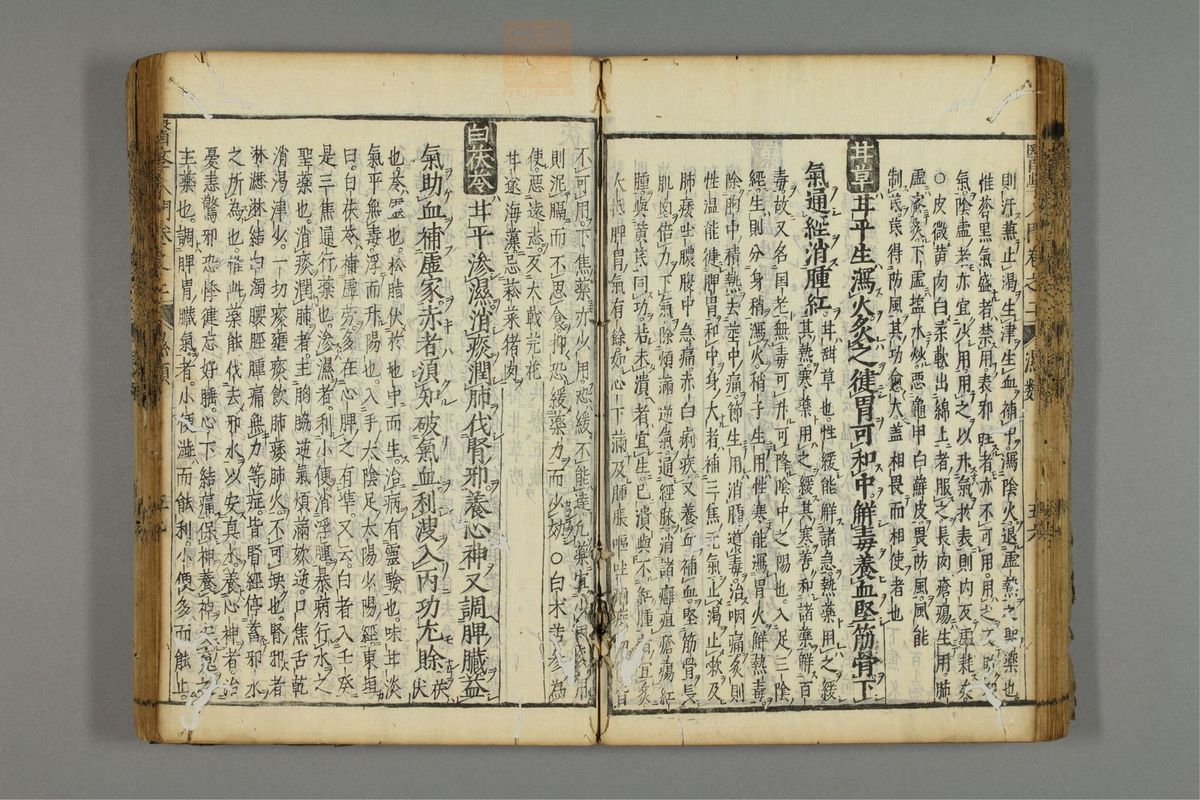 則汗兼止渴生津生血補中瀉陰火退虛熱之聖藥也
惟蒼黑氣盛者禁用表邪旺者亦不可用用之
氣陰虛者亦宜少用用之以升氣於表則内反虛耗矣
○皮微黃肉白柔軟出綿上者服之長肉瘡瘍生用肺
虛蜜炙下虛鹽水炒惡龜甲白蘚皮畏防風風能
制黃芪得防風其功愈大蓋相畏而相使者也
甘草甘平生瀉火炙之健胃可和中解毒養血堅筋骨下
氣通經消腫紅甘甜草也性緩能解諸急熱藥用之緩
其熱寒藥用之緩其寒善和諸藥解百
毒故又名国老無毒可升可降陰中之陽也入足三陰
經生則分身稍瀉火稍子生用性寒能瀉胃火解熱毒
除胸中積熱去莖中痛節生用消腫導毒治咽痛炙則
性温能健脾胃和中身大者補三焦元氣止渴止嗽及
肺痿吐膿腹中急痛赤白痢疾又養血補血堅筋骨長
肌肉倍力下氣除煩滿逆氣通經脉消諸癰疽瘡瘍紅
腫與黃芪同功若未潰者宜生已潰與不紅腫者宜炙
大抵脾胃氣有餘如心下滿及腫脹嘔吐痢疾
不可用下焦藥亦少用恐緩不能達凡藥宜少
則泥膈而不思食抑恐緩藥力而少効○白朮苦參為
使惡遠志反大戟芫花
甘遂海藻忌菘菜猪肉
白茯苓甘平滲濕消痰潤肺伐腎邪養心神又調脾臟益
氣助血補虛家赤者須知破氣血利溲入丙功尤賒茯伏
也苓靈也松脂伏於地中而生治病有靈驗也味甘淡
氣平無毒浮而升陽也入手太陰足太陽少陽經東垣
曰白茯苓補虛勞多在心脾之有準又云白者入壬癸
是三焦通行藥也滲濕者利小便消浮腫暴病行水之
聖藥也消痰潤肺者主胸脇逆氣煩滿欬逆口焦舌乾
消渴津少一切痰壅痰飲肺痿肺火不可缺也腎邪者
淋瀝淋結白濁腰脛腫痛無力等症皆腎經停蓄邪水
之所為也惟此藥能伐去邪水以安真水養心神者治
憂恚驚邪恐悸健忘好睡心下結痛保神養神
主藥也調脾胃臟氣者小便澁而能利小便多而能止